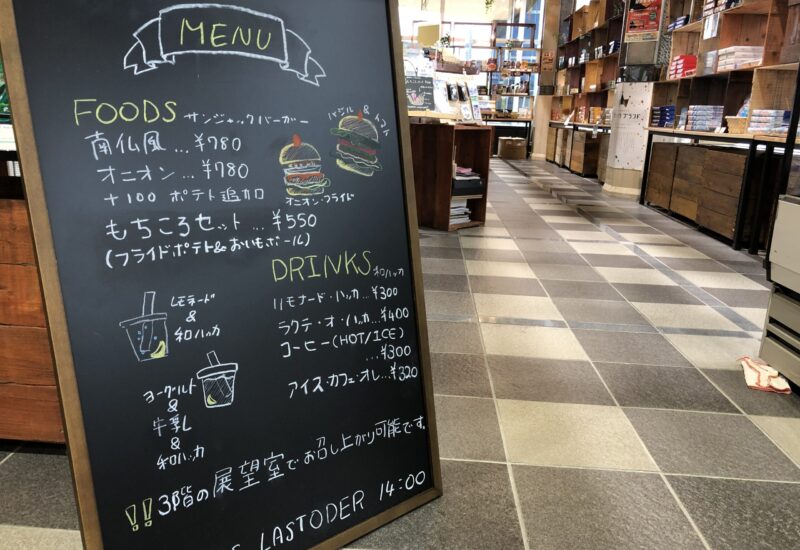 MENU
FOODS サンジャックバーガー
南仏風 … ¥780
オニオン … ¥780
+100 ポテト追加
もちころセット … ¥550
(フライドポテト&おいもボール)
バジル & トマト
オニオン・フライド
DRINKS 和ハッカ
リモナード・ハッカ … ¥300
ラクテ・オ・ハッカ … ¥400
コーヒー(HOT/ICE)
… ¥300
アイス・カフェ・オレ … ¥320
レモネード
&
和ハッカ
ヨーグルト
&
牛乳
&
和ハッカ
!! 3階の展望室でお召し上がり可能です。
LASTODER 14:00